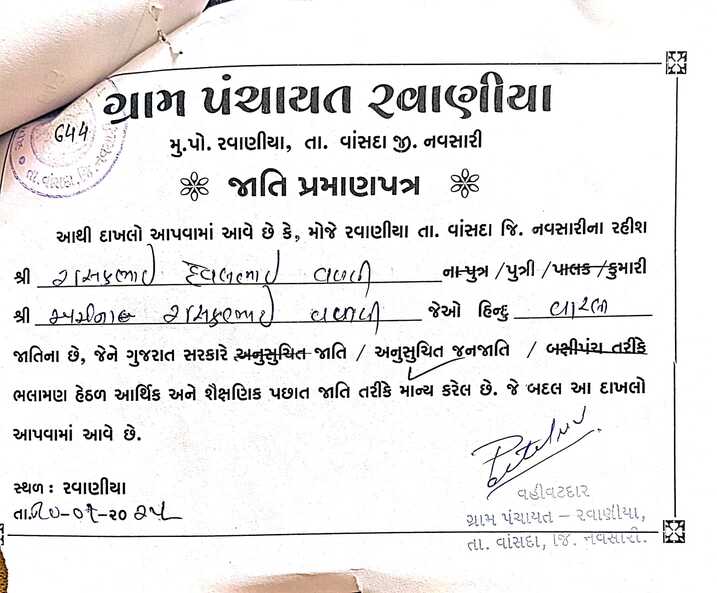 ગ્રામ પંચાયત રવાણીયા
644
મુ.પો. રવાણીયા, તા. વાંસદા જી. નવસારી
જાતિ પ્રમાણપત્ર
આથી દાખલો આપવામાં આવે છે કે, મોજે રવાણીયા તા. વાંસદા જિ. નવસારીના રહીશ
શ્રી ના પુત્ર /પુત્રી /પાલક/કુમારી
શ્રી જેઓ હિન્દુ વારલી
જાતિના છે, જેને ગુજરાત સરકારે અનુસુચિત જાતિ / અનુસુચિત જનજાતિ / બક્ષીપંચ તરીકે
ભલામણ હેઠળ આર્થિક અને શૈક્ષણિક પછાત જાતિ તરીકે માન્ય કરેલ છે. જે બદલ આ દાખલો
આપવામાં આવે છે.
સ્થળ : રવાણીયા
તા. ૨૦૨૫
વહીવટદાર
ગ્રામ પંચાયત – રવાણીયા,
તા. વાંસદા, જિ. નવસારી.